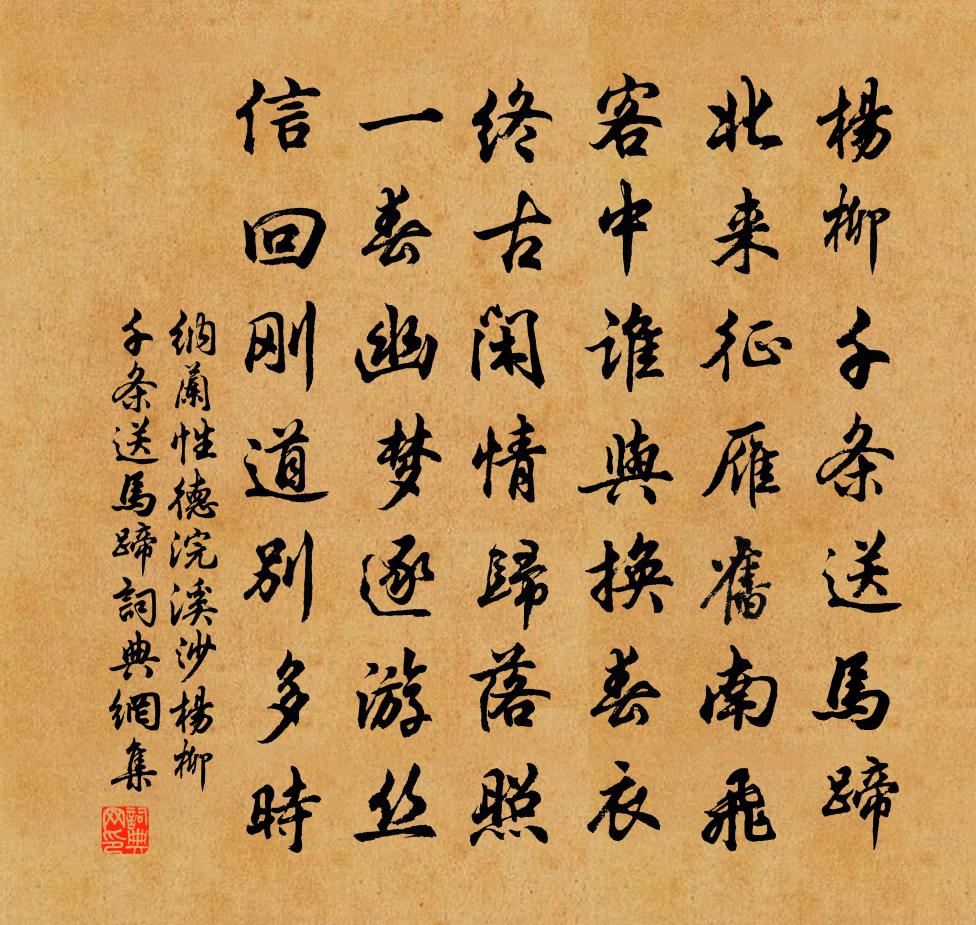 楊柳千条送馬蹄
北来征雁舊南飛
客中誰與換春衣
終古閑情歸落照
一春幽梦逐游丝
信回刚道别多時
納蘭性德浣溪沙楊柳
千条送馬蹄詞典網集
詞典网印